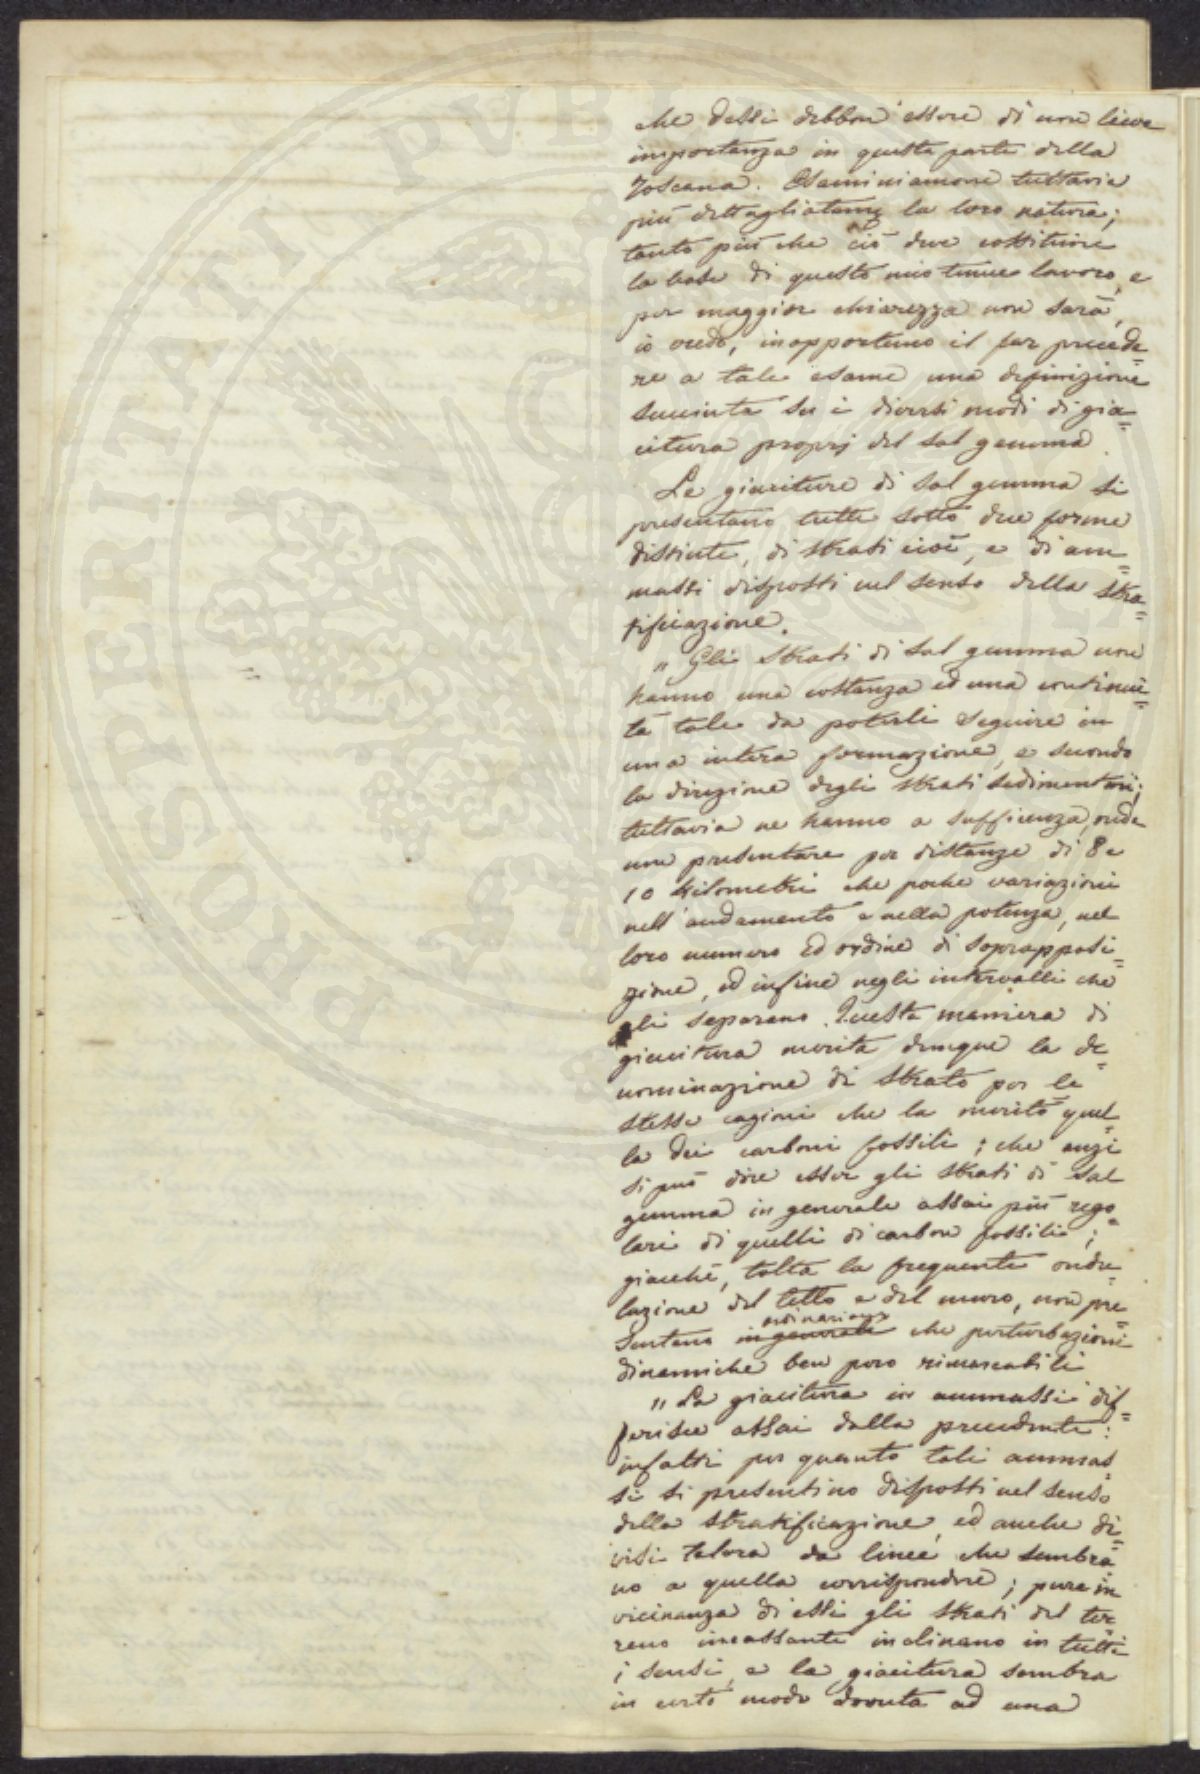 che dessi debbon essere di non lieve
importanza in questa parte della
Toscana. Esaminiamone tuttavia
più dettagliatam̃e la loro natura;
tanto più che ciò deve costituire
la base di questo mio tenue lavoro, e
per maggior chiarezza non sarà,
io credo, inopportuno il far precede=
re a tale esame una definizione
succinta su i diversi modi di gia=
citura proprj del sal gemma.
Le giaciture di sal gemma si
presentano tutte sotto due forme
distinte, di strati cioè, e di am=
massi disposti nel senso della stra=
tificazione.
„ Gli strati di sal gemma non
hanno una costanza ed una continui=
tà tale da poterli seguire in
una intera formazione, e secondo
la direzione degli strati sedimentarii;
tuttavia ne hanno a sufficenza, onde
non presentare per distanze di 8 e
10 kilometri che poche variazioni
nell'andamento e nella potenza, nel
loro numero ed ordine di soprapposi=
zione, ed infine negli intervalli che
gli separano. Questa maniera di
giacitura merita dunque la de=
nominazione di strato per le
stesse cagioni che la meritò quel=
la dei carboni fossili; che anzi
si può dire esser gli strati di sal
gemma in generale assai più rego=
lari di quelli di carbon fossile;
giacchè, tolta la frequente ondu=
lazione del tetto e del muro, non pre=
sentano in generale ordinariam̃e che perturbazioni
dinamiche ben poco rimarcabili
„ La giacitura in ammassi dif=
ferisce assai dalla precedente:
infatti per quanto tali ammas=
si si presentino disposti nel senso
della stratificazione, ed anche di=
visi talora da linee che sembra=
no a quella corrispondere; pure in
vicinanza di essi gli strati del ter=
reno incassante inclinano in tutti
i sensi, e la giacitura sembra
in certo modo dovuta ad una
PROSPERITATI PVBL